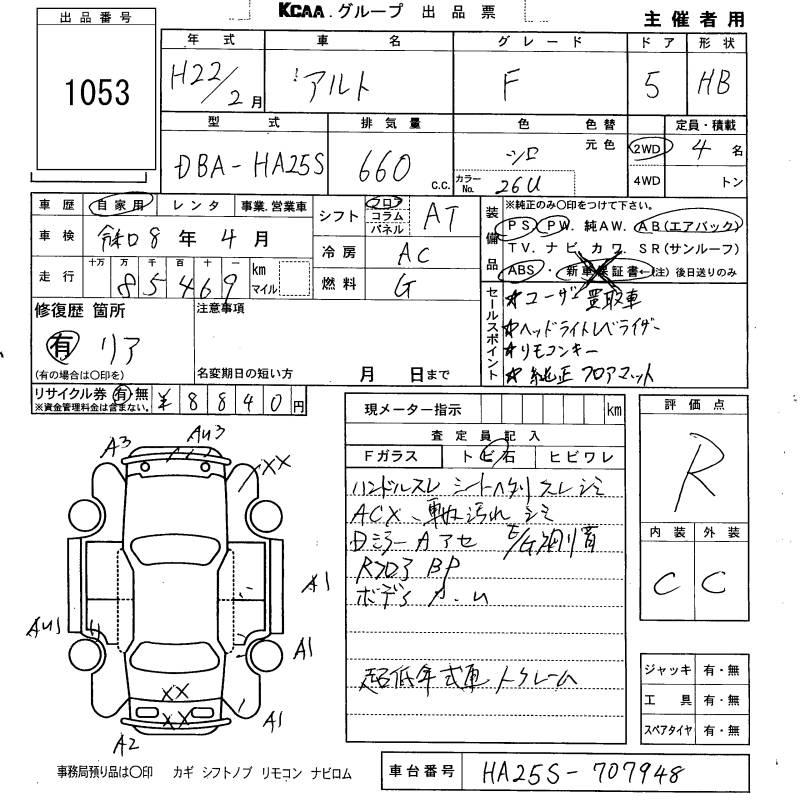 KCAA.グループ 出品票
主催者用
出品番号
1053
年式 車名 グレード ドア 形状
H22/2月 アルト F 5 HB
型式 排気量 色 色替 定員・積載
DBA-HA25S 660 c.c. シロ 元色 2WD 4 名
カラーNo. 26U 4WD トン
車歴 自家用 レンタ 事業.営業車
シフト フロア コラム パネル AT
車検 令和8年 4月
冷房 AC
走行 十万 万 千 百 十 一 85469 km マイル
燃料 G
装備品 ※純正のみ〇印をつけて下さい。
PS. PW. 純AW. AB(エアバック)
TV. ナビ. カワ. SR(サンルーフ)
ABS・新車保証書←(注) 後日送りのみ
セールスポイント
★ユーザー買取車
★ヘッドライトレベライザー
★リモコンキー
★純正フロアマット
修復歴 箇所
有 リア
(有の場合は〇印を)
注意事項
名変期日の短い方 月 日まで
リサイクル券 有 無 ¥8840円
※資金管理料金は含まない。
現メーター指示 km
査定員記入
Fガラス トビ石 ヒビワレ
ハンドルスレ シートヘタリ スレ シミ
ACX、車内汚れ シミ
ミラーA アセ
Rフロア BP
ボディ
超低年式車 トクレーム
評価点
R
内装 外装
C C
ジャッキ 有・無
工具 有・無
スペアタイヤ 有・無
A3 AU3 XX
A1
AU1 A1
XX
XX A1
A2
事務局預り品は〇印 カギ シフトノブ リモコン ナビロム
車台番号 HA25S-707948